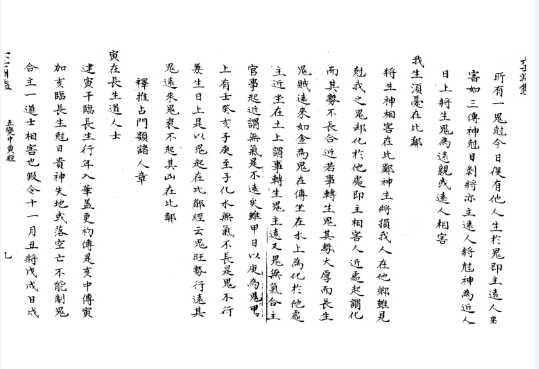 所有一鬼尅今日復有他人生於鬼即主遠人來
審如三傳神尅日剥將亦主遠人將尅神為近人
日上將生鬼為遠親或遠人相害
我生須憂在比鄰
將生神相害在比鄰神生將損我人在他鄉雖見
尅我之鬼却化於他處即主相害人近處起謂化
而其勢不長合近若事轉生鬼其勢大厚而長生
鬼賊遠來如金為鬼在傳坐在水上為化於他處
主近坐在土上謂事轉生鬼主遠又鬼無氣合主
官事起近謂無氣是不遠矣雖甲日以庚為鬼甲
上有士癸亥子庚至子化水無氣不長是鬼不行
兼生日上是以鬼起在比鄰經云鬼旺勢行遠其
鬼遠來鬼衰不起其凶在比鄰
釋推占門類諸人章
寅在長生道人士
建寅干臨長生行年入華蓋更初傳是亥中傳寅
加亥臨長生尅日貴神失地或落空亡不能制鬼
合主一道士相害也假令十一月丑將戊戌日戌
五變中黃經